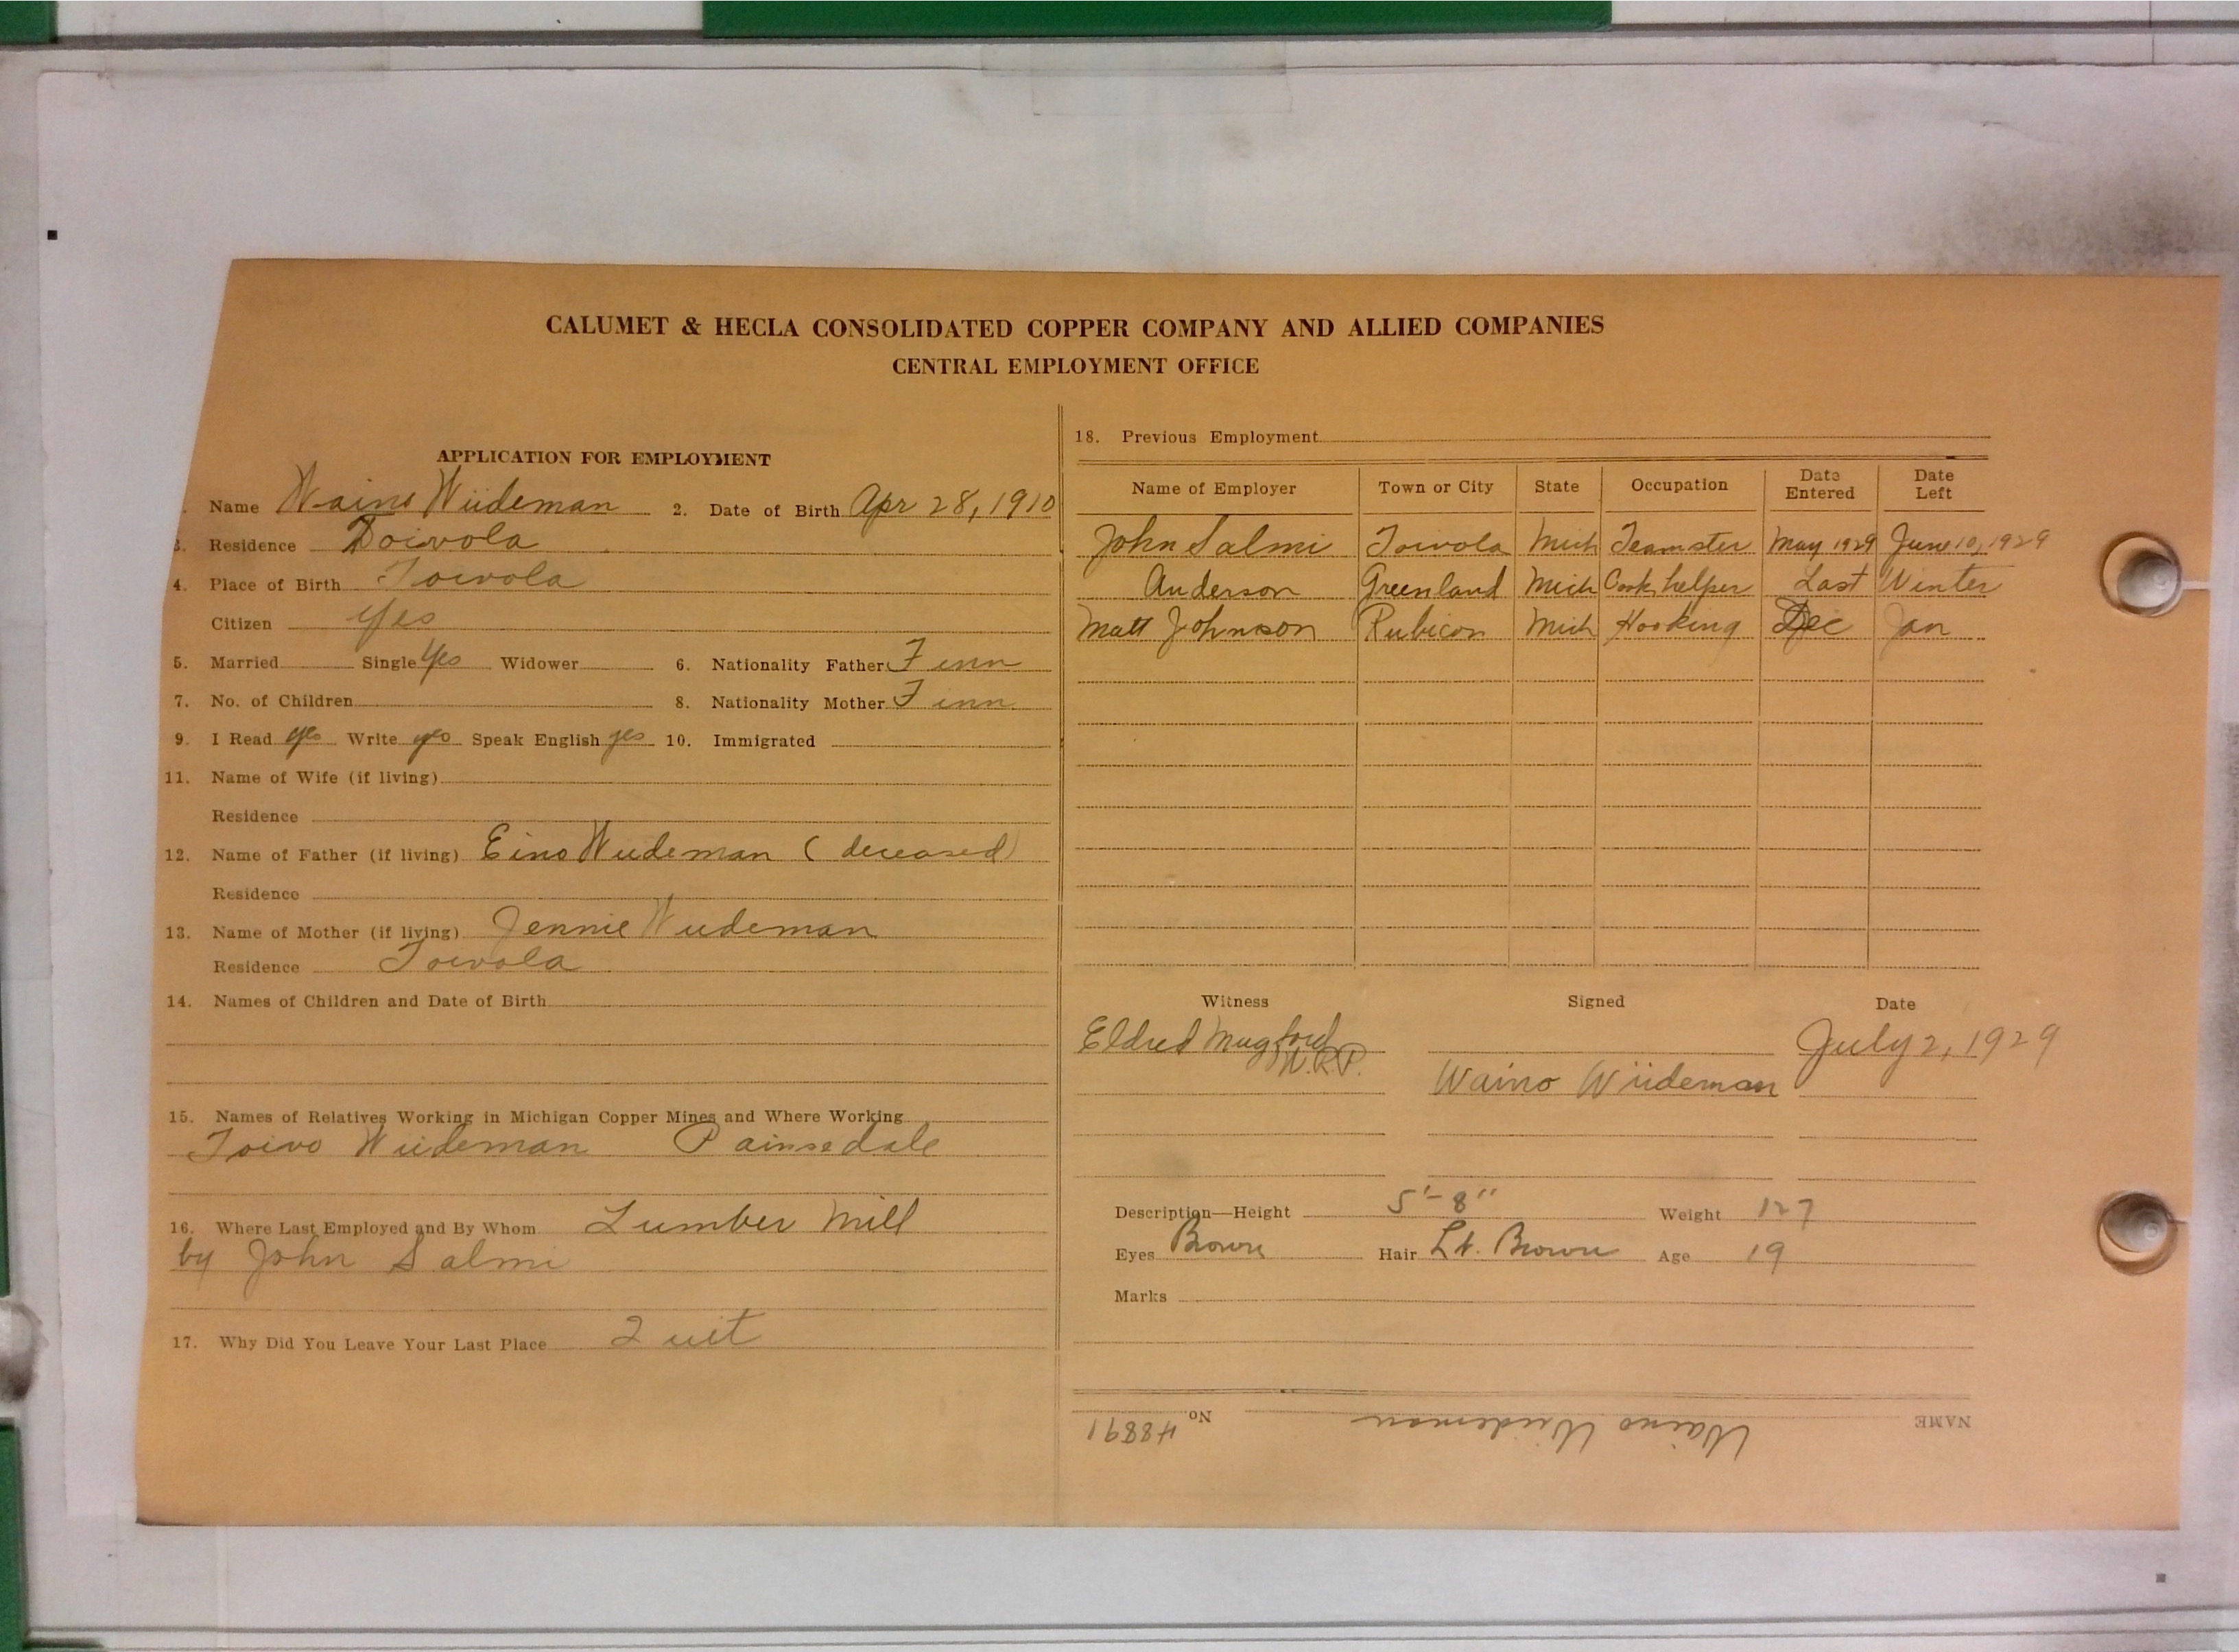 CALUMET & HECLA CONSOLIDATED COPPER COMPANY AND ALLIED COMPANIES
CENTRAL EMPLOYMENT OFFICE
APPLICATION FOR EMPLOYMENT
Name Waino Wiideman 2. Date of Birth Apr 28, 1910
3. Residence Toivola
4. Place of Birth Toivola
Citizen Yes
5. Married Single Yes Widower 6. Nationality Father Finn
7. No. of Children 8. Nationality Mother Finn
9. I Read yes Write yes Speak English yes 10. Immigrated
11. Name of Wife (if living)
Residence
12. Name of Father (if living) Eino Wiideman (deceased)
Residence
13. Name of Mother (if living) Jennie Wiideman
Residence Toivola
14. Names of Children and Date of Birth
15. Names of Relatives Working in Michigan Copper Mines and Where Working
Toivo Wiideman Painsedale
16. Where Last Employed and By Whom Lumber Mill
by John Salmi
17. Why Did You Leave Your Last Place Quit
18. Previous Employment
Name of Employer Town or City State Occupation Date Entered Date Left
John Salmi Toivola Mich Teamster May 1929 June 10, 1929
Anderson Greenland Mich Cook helper Last Winter
Matt Johnson Rubicon Mich Hooking Dec Jan
Witness Signed Date
Eldred Mugford July 2, 1929
W.R.P. Waino Wiideman
Description—Height 5'-8" Weight 127
Eyes Brown Hair Lt. Brown Age 19
Marks
NAME Waino Wiideman No. 48891